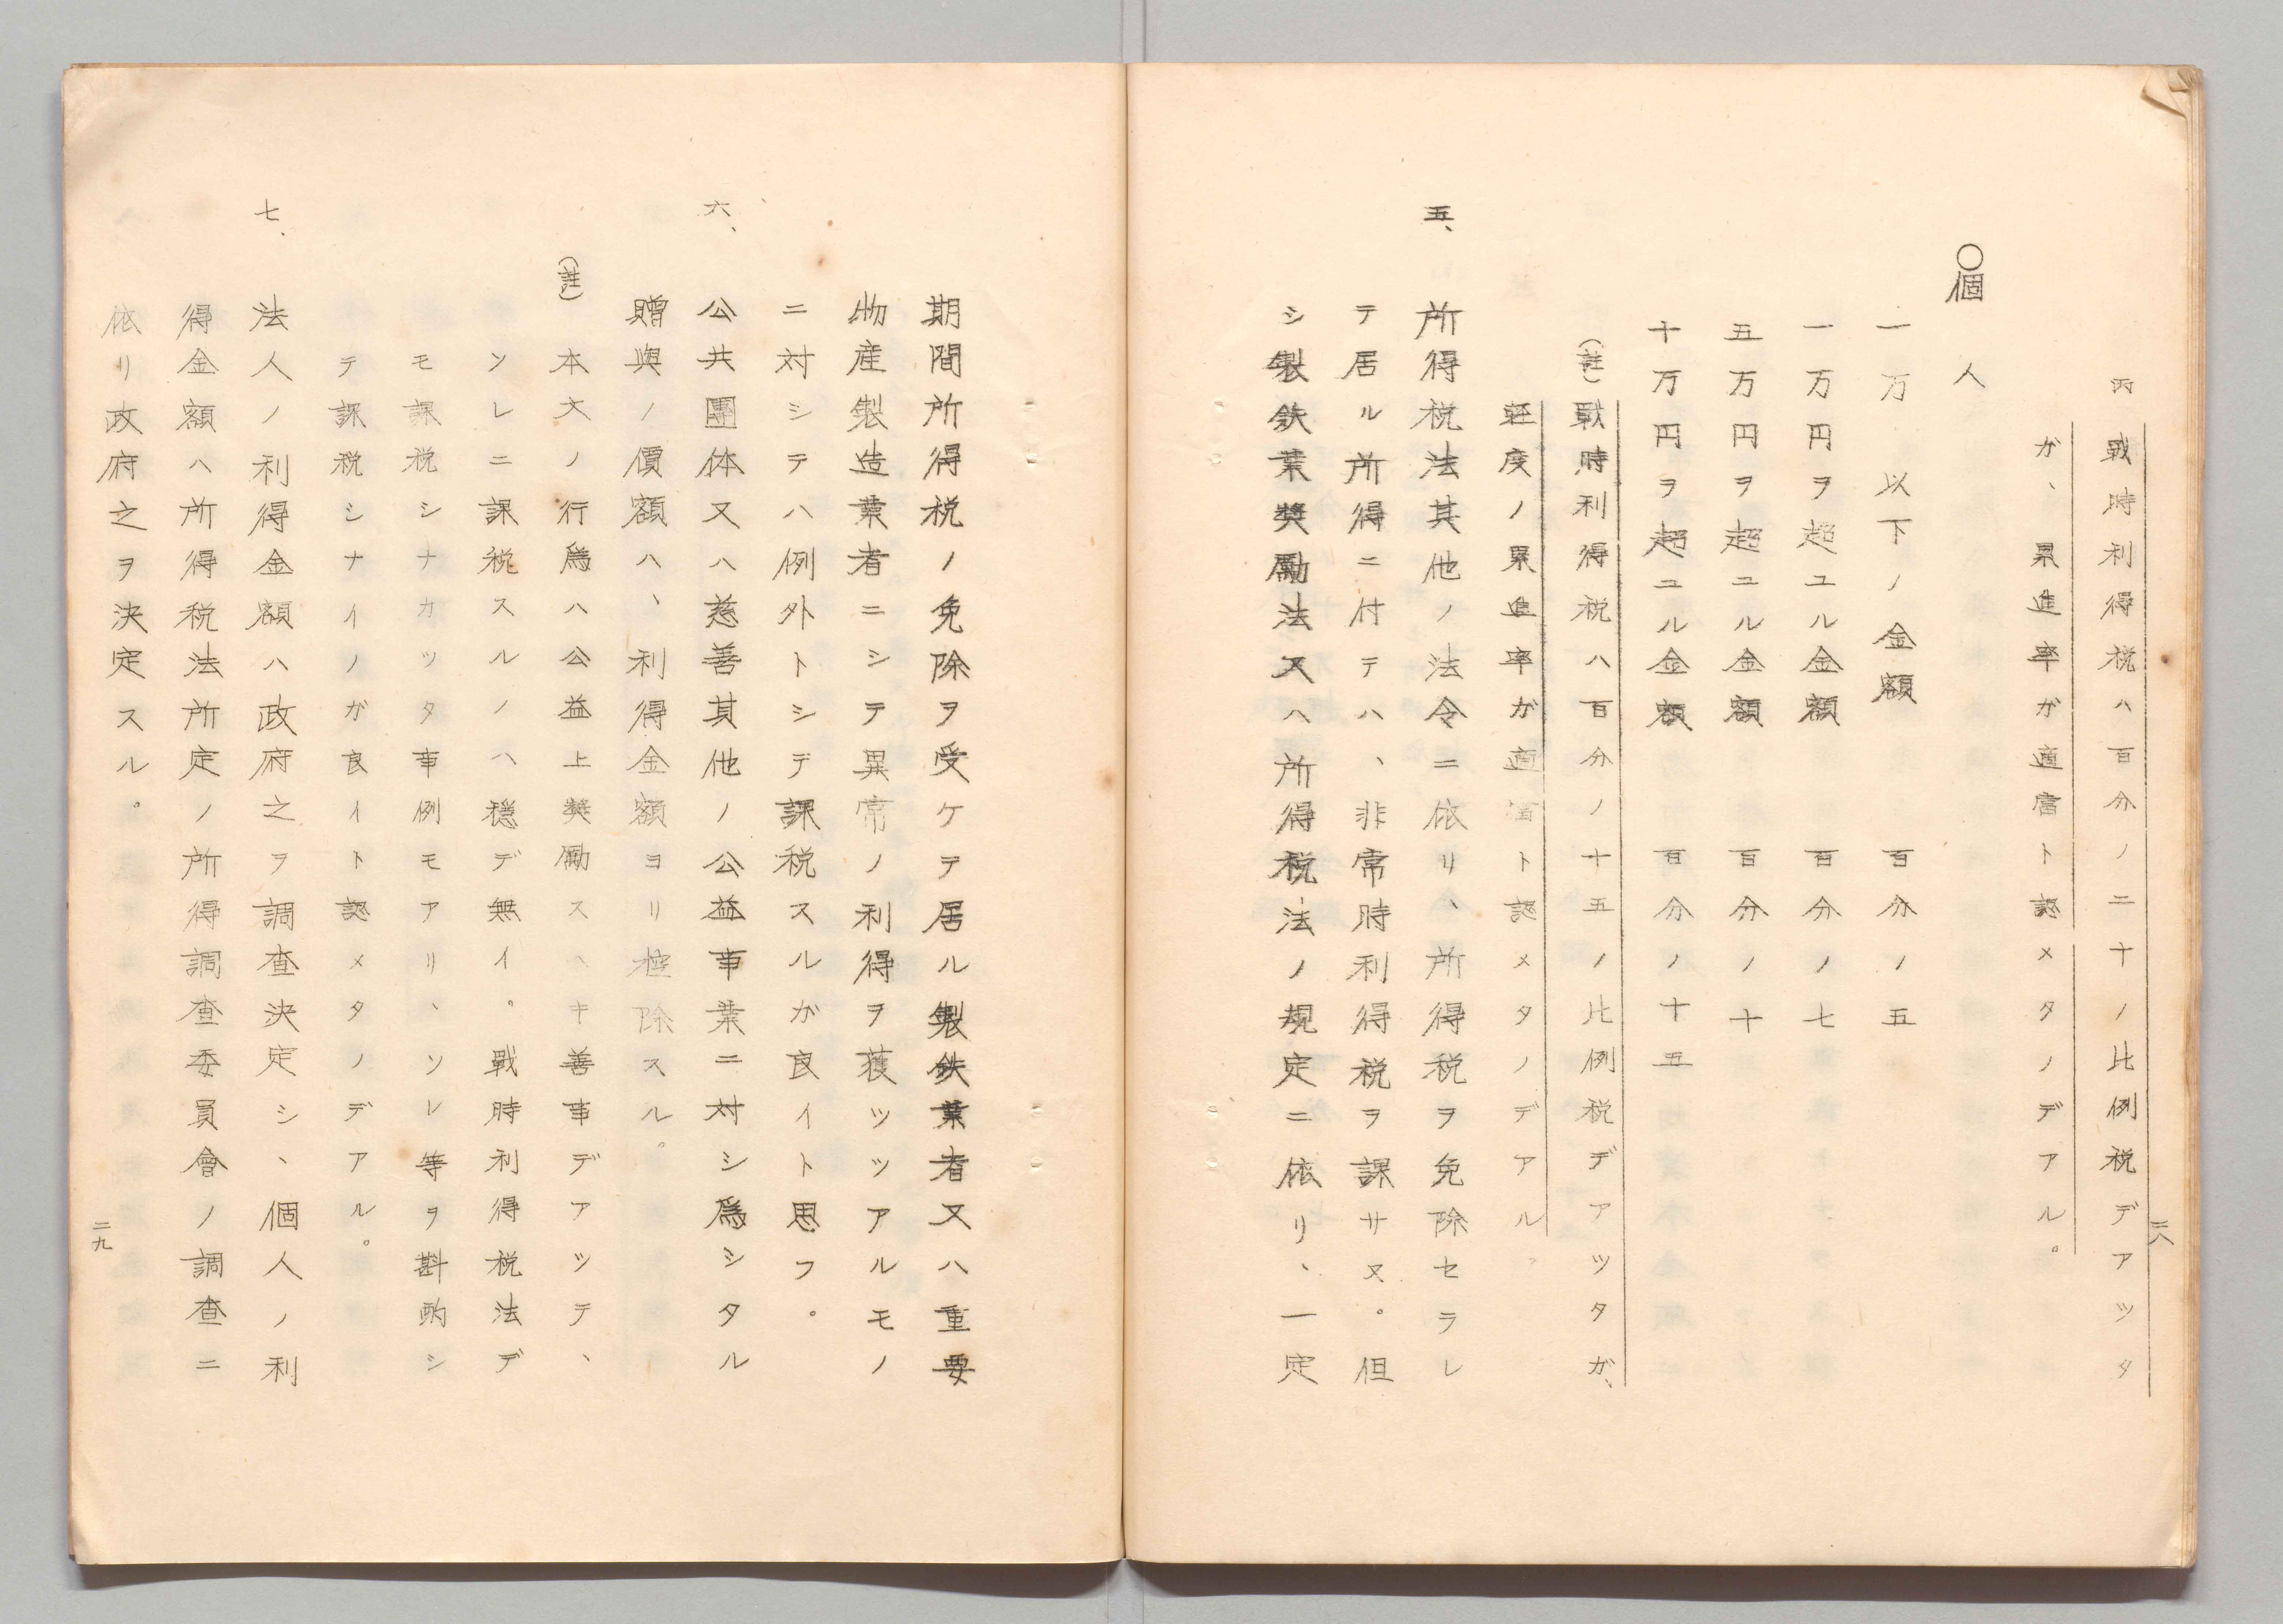 丙 戰時利得税ハ百分ノ二十ノ比例税デアツタ
ガ、累進率ガ適當ト認メタノデアル。
○個人
一万 以下ノ金額 百分ノ五
一万円ヲ超ユル金額 百分ノ七
五万円ヲ超ユル金額 百分ノ十
十万円ヲ超ユル金額 百分ノ十五
(註) 戰時利得税ハ百分ノ十五ノ比例税デアツタガ、
軽度ノ累進率ガ適當ト認メタノデアル。
五、所得税法其他ノ法令ニ依リ、所得税ヲ免除セラレ
テ居ル所得ニ付テハ、非常時利得税ヲ課サヌ。但
シ製鉄業奬勵法又ハ所得税法ノ規定ニ依リ、一定
二八
期間所得税ノ免除ヲ受ケテ居ル製鉄業者又ハ重要
物産製造業者ニシテ異常ノ利得ヲ獲ツツアルモノ
ニ対シテハ例外トシデ課税スルガ良イト思フ。
六、公共團体又ハ慈善其他ノ公益事業ニ対シ爲シタル
贈與ノ價額ハ、利得金額ヨリ控除スル。
(註) 本文ノ行爲ハ公益上奬勵スヘキ善事デアツテ、
ソレニ課税スルノハ穏デ無イ。戰時利得税法デ
モ課税シナカツタ事例モアリ、ソレ等ヲ斟酌シ
テ課税シナイノガ良イト認メタノデアル。
七、法人ノ利得金額ハ政府之ヲ調査決定シ、個人ノ利
得金額ハ所得税法所定ノ所得調査委員會ノ調査ニ
依リ政府之ヲ決定スル。
二九